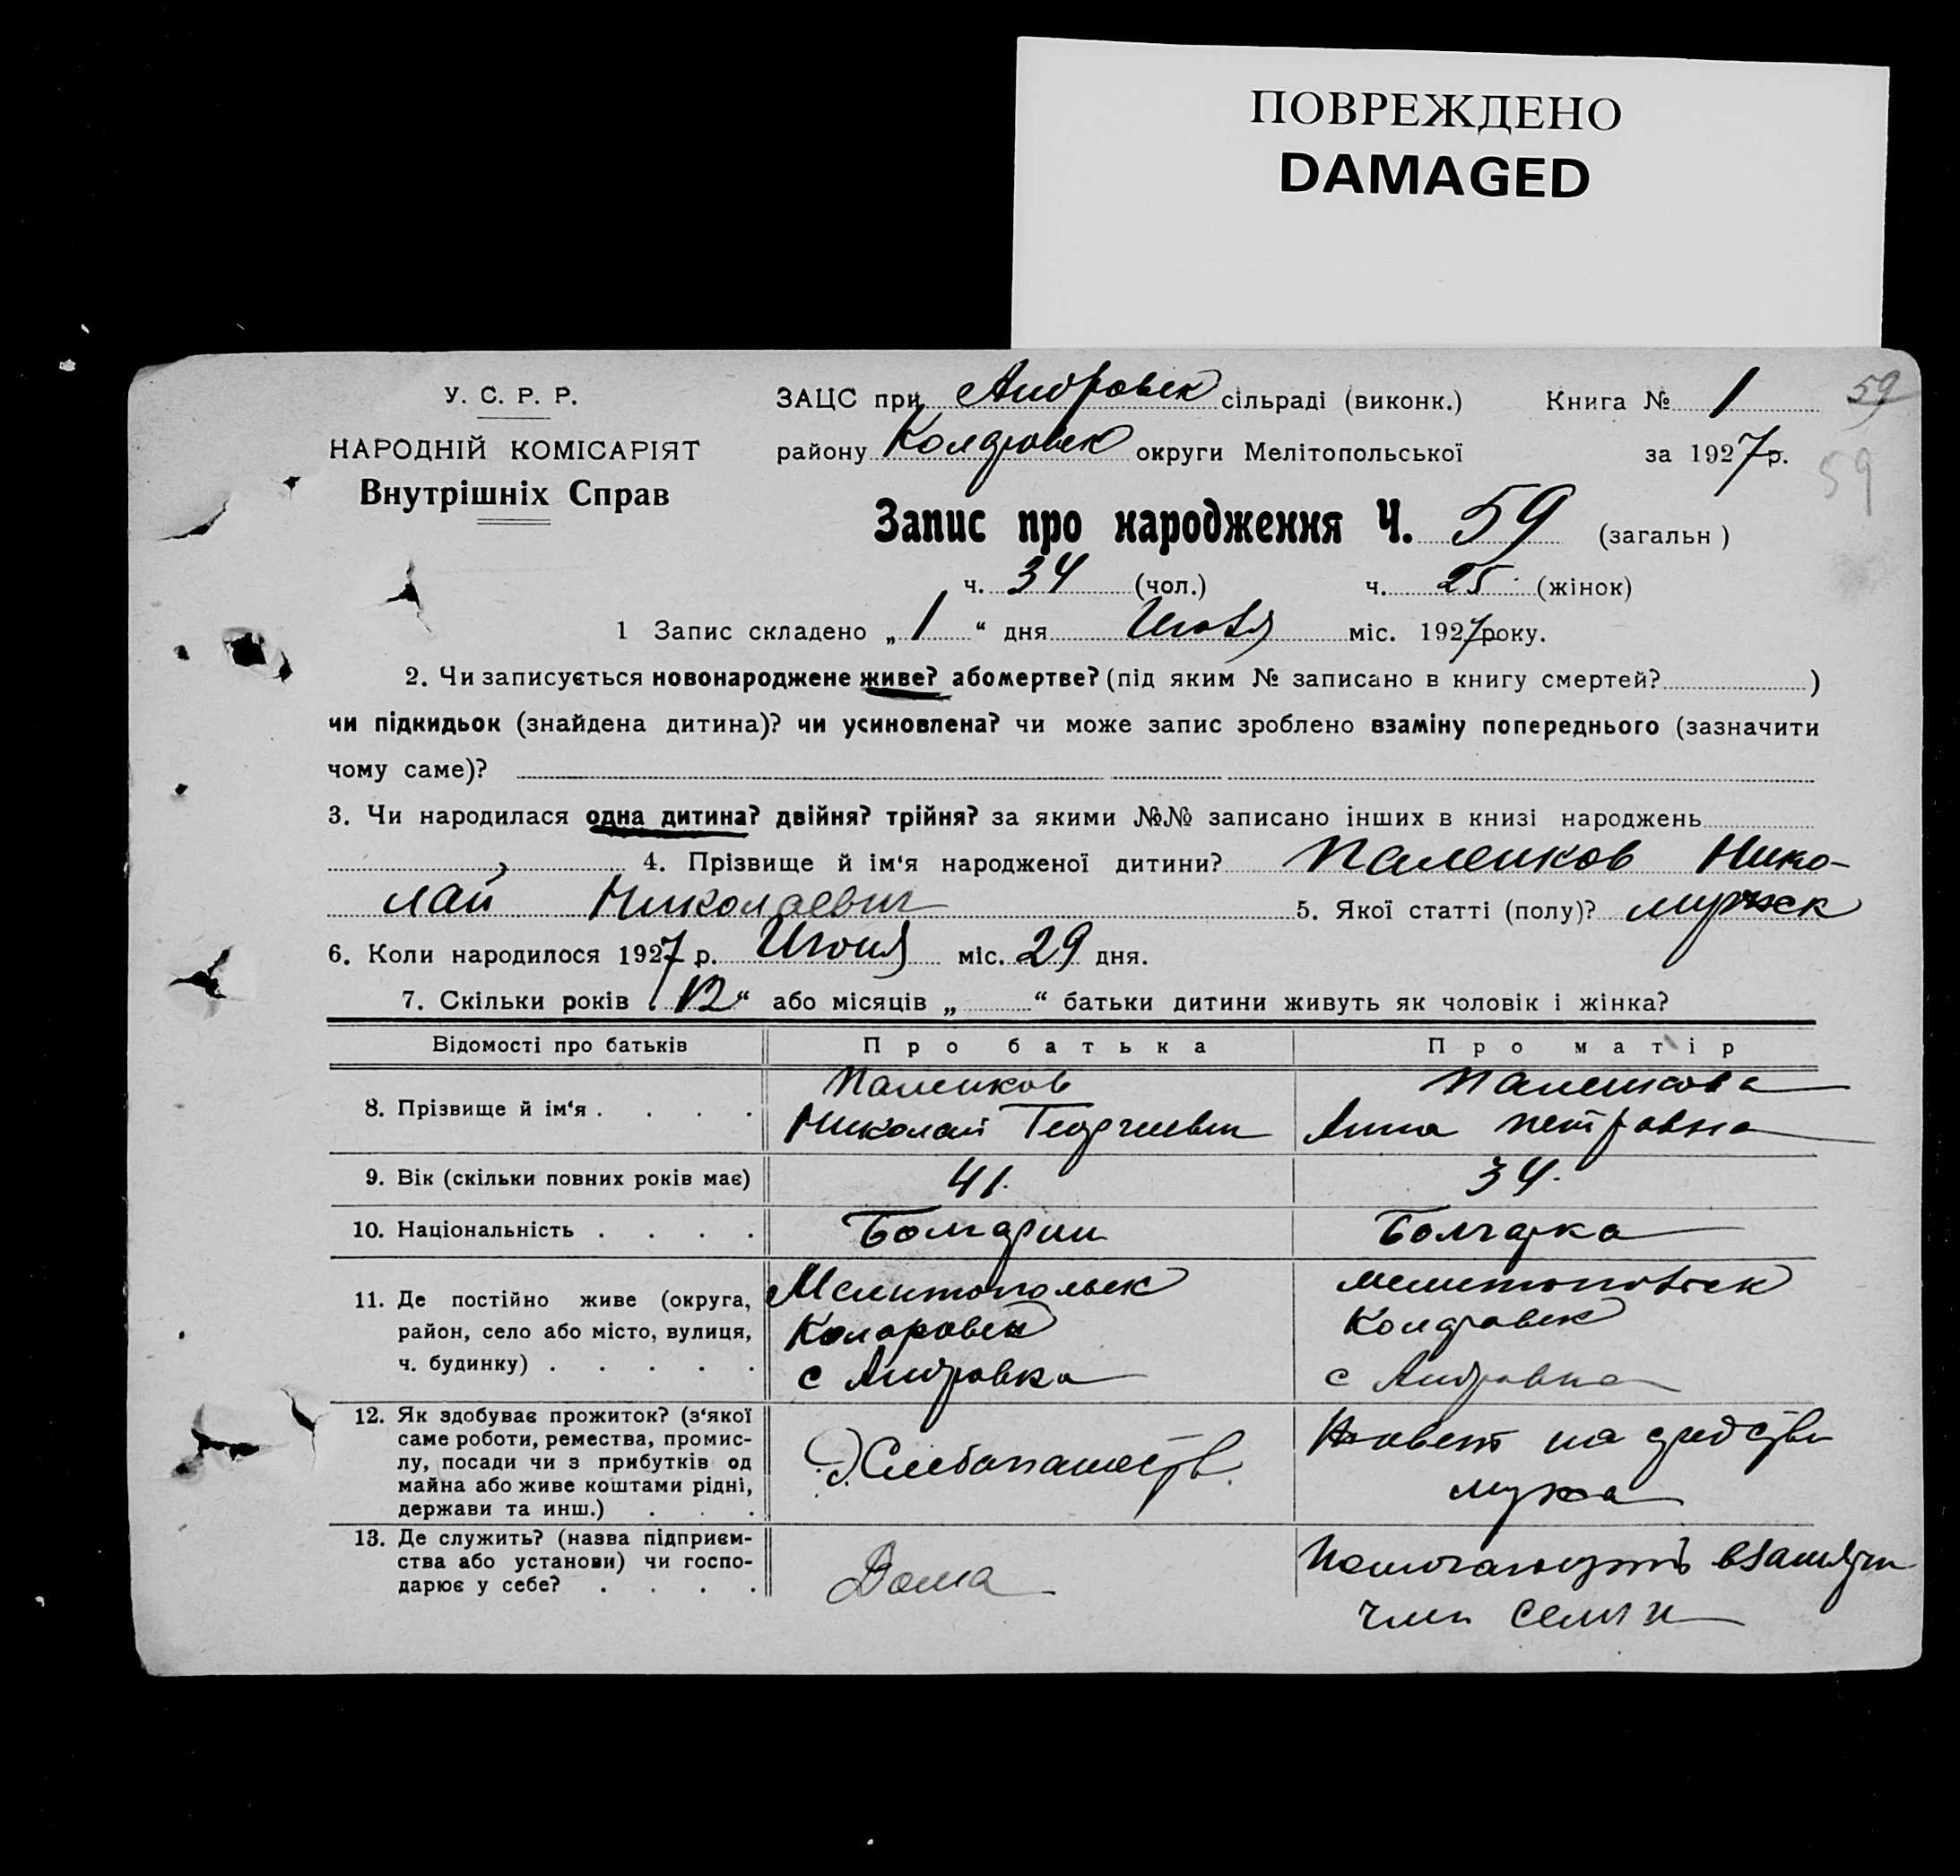 ПОВРЕЖДЕНО
DAMAGED
У. С. Р. Р.
НАРОДНІЙ КОМІСАРІЯТ
Внутрішніх Справ
ЗАЦС при Андровск сільраді (виконк.) Книга № 1 59
району Коларовск округи Мелітопольської за 1927 р. 59
Запис про народження Ч. 59 (загальн )
ч. 34 (чол.) ч. 25 (жінок)
1 Запис складено „ 1 “ дня Июля міс. 1927 року.
2. Чи записується новонароджене живе? або мертве? (під яким № записано в книгу смертей? )
чи підкидьок (знайдена дитина)? чи усиновлена? чи може запис зроблено взаміну попереднього (зазначити
чому саме)?
3. Чи народилася одна дитина? двійня? трійня? за якими №№ записано інших в книзі народжень
4. Прізвище й ім‘я народженої дитини? Паленков Нико-
лай Николаевич 5. Якої статті (полу)? мужск
6. Коли народилося 1927 р. Июня міс. 29 дня.
7. Скільки років „ 12 “ або місяців „ “ батьки дитини живуть як чоловік і жінка?
Відомості про батьків Про батька Про матір
8. Прізвище й ім‘я . . . . Паленков Николай Георгиевич Паленкова Анна Петровна
9. Вік (скільки повних років має) 41. 34.
10. Національність . . . . Болгарин Болгарка
11. Де постійно живе (округа, Мелитопольск мелитопольск
район, село або місто, вулиця, Коларовск Коларовск
ч. будинку) . . . . . с Андровка с Андровка
12. Як здобуває прожиток? (з‘якої
саме роботи, ремества, промис-
лу, посади чи з прибутків од Хлебопашеств. Живет на средства
майна або живе коштами рідні, мужа
держави та инш.) . . .
13. Де служить? (назва підприєм-
ства або установи) чи госпо- Дома
дарює у себе? . . . .
член семьи